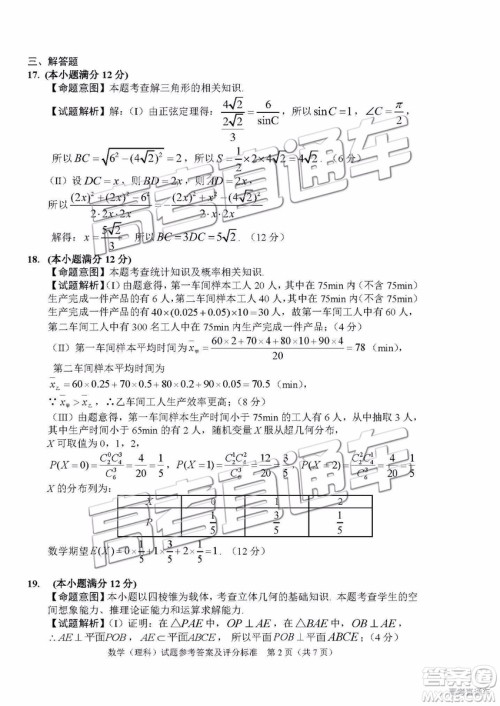 三、解答题
17. (本小题满分 12 分)
【命题意图】本题考查解三角形的相关知识.
【试题解析】解：(I) 由正弦定理得：\frac{4\sqrt{2}}{\frac{2\sqrt{2}}{3}} = \frac{6}{sinC}，所以 sinC=1，∠C=\frac{π}{2}，
所以 BC=\sqrt{6²-(4\sqrt{2})²}=2，所以 S=\frac{1}{2}×2×4\sqrt{2}=4\sqrt{2}．(6 分)
(II) 设 DC=x，则 BD=2x，则 AD=2x，
所以 \frac{(2x)²+(2x)²-6²}{2·2x·2x}
\frac{(2x)²+x²-(4\sqrt{2})²}{2·2x·x}
解得：x=\frac{5\sqrt{2}}{3}，所以 BC=3DC=5\sqrt{2}．(12 分)
18. (本小题满分 12 分)
【命题意图】本题考查统计知识及概率相关知识.
【试题解析】(I) 由题意得，第一车间样本工人 20 人，其中在 75min 内（不含 75min）
生产完成一件产品的有 6 人，第二车间样本工人 40 人，其中在 75min 内（不含 75min）
生产完成一件产品的有 40×(0.025+0.05)×10=30 人，故第一车间工人中有 人，
第二车间工人中有 300 名工人中有 人；(4 分)
(II) 第一车间样本平均时间为 x̄甲=\frac{60×2+70×4+80×10+90×4}{20}=78 (min)，
第二车间样本平均时间为
x̄乙=60×0.25+70×0.5+80×0.2+90×0.05=70.5 (min)，
∵x̄甲>x̄乙，∴乙车间工人生产效率更高；(8 分)
(III) 由题意得，第一车间样本生产时间小于 75min 的工人有 6 人，从中抽取 3 人，其中
生产时间小于 65min 的有 2 人，随机变量 X 服从超几何分布，
X 可取值为 0，1，2，
P(X=0)=\frac{C₂⁰C₄³}{C₆³}=\frac{4}{20}=\frac{1}{5}，P(X=1)=\frac{C₂¹C₄²}{C₆³}=\frac{12}{20}=\frac{3}{5}，P(X=2)=\frac{C₂²C₄¹}{C₆³}=\frac{4}{20}=\frac{1}{5}.
X 的分布列为：
X 0 1 2
P \frac{1}{5} \frac{3}{5} \frac{1}{5}
数学期望 E(X)=0×\frac{1}{5}+1×\frac{3}{5}+2×\frac{1}{5}=1．(12 分)
19. (本小题满分 12 分)
【命题意图】本题以四棱锥为载体，考查立体几何的相关知识．考查学生的空
间想象能力、推理论证能力和运算求解能力.
【试题解析】(I) 证明：在△PAE 中，OP⊥AE，在△BAE 中，OB⊥AE，
∴AE⊥平面POB，AE⊂平面ABCE，所以平面POB⊥平面ABCE；(4 分)
数学（理科）试题参考答案及评分标准 第 2 页（共 7 页）
高考直通车